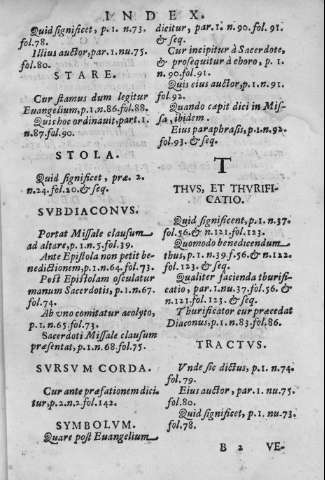 INDEX.
Quid significet, p.1. n.73.
fol.78.
Illius auctor, par.1. nu.75.
fol.80.
STARE.
Cur stamus dum legitur
Euangelium, p.1.n.86.fol.88.
Quis hoc ordinauit, part.1.
n.87.fol.90.
STOLA.
Quid significet, præ. 2.
n.24.fol.20.& seq.
SVBDIACONVS.
Portat Missale clausum
ad altare, p.1.n.5.fol.39.
Ante Epistola non petit be-
nedictionem, p.1.n.64.fol.73.
Post Epistolam osculatur
manum Sacerdotis, p.1.n.67.
fol.74.
Ab vno comitatur acolyto,
p.1.n.65.fol.73.
Sacerdoti Missale clausum
præsentat, p.1.n.68.fol.75.
SVRSVM CORDA.
Cur ante præfationem dici-
tur, p.2.n.2.fol.142.
SYMBOLVM.
Quare post Euangelium
dicitur, par.1. n.90.fol.91.
& seq.
Cur incipitur à Sacerdote,
& prosequitur à choro, p.1.
n.90.fol.91.
Quis eius auctor, p.1.n.91.
fol.92.
Quando capit dici in Mis-
sa, ibidem.
Eius paraphrasis, p.1.n.92.
fol.93.& seq.
T
THVS, ET THVRIFI-
CATIO.
Quid significent, p.1. n.37.
fol.56.& n.121.fol.123.
Quomodo benedicendum
thus, p.1.n.39.f.56.& n.122.
fol.123. & seq.
Qualiter facienda thurifi-
catio, par.1.nu.37.fol.56. &
n.121.fol.123. & seq.
Thurificator cur præcedat
Diaconus, p.1.n.83.fol.86.
TRACTVS.
Vnde sic dictus, p.1. n.74.
fol.79.
Eius auctor, par.1. nu.75.
fol.80.
Quid significet, p.1. nu.73.
fol.78.
B 2 VE-